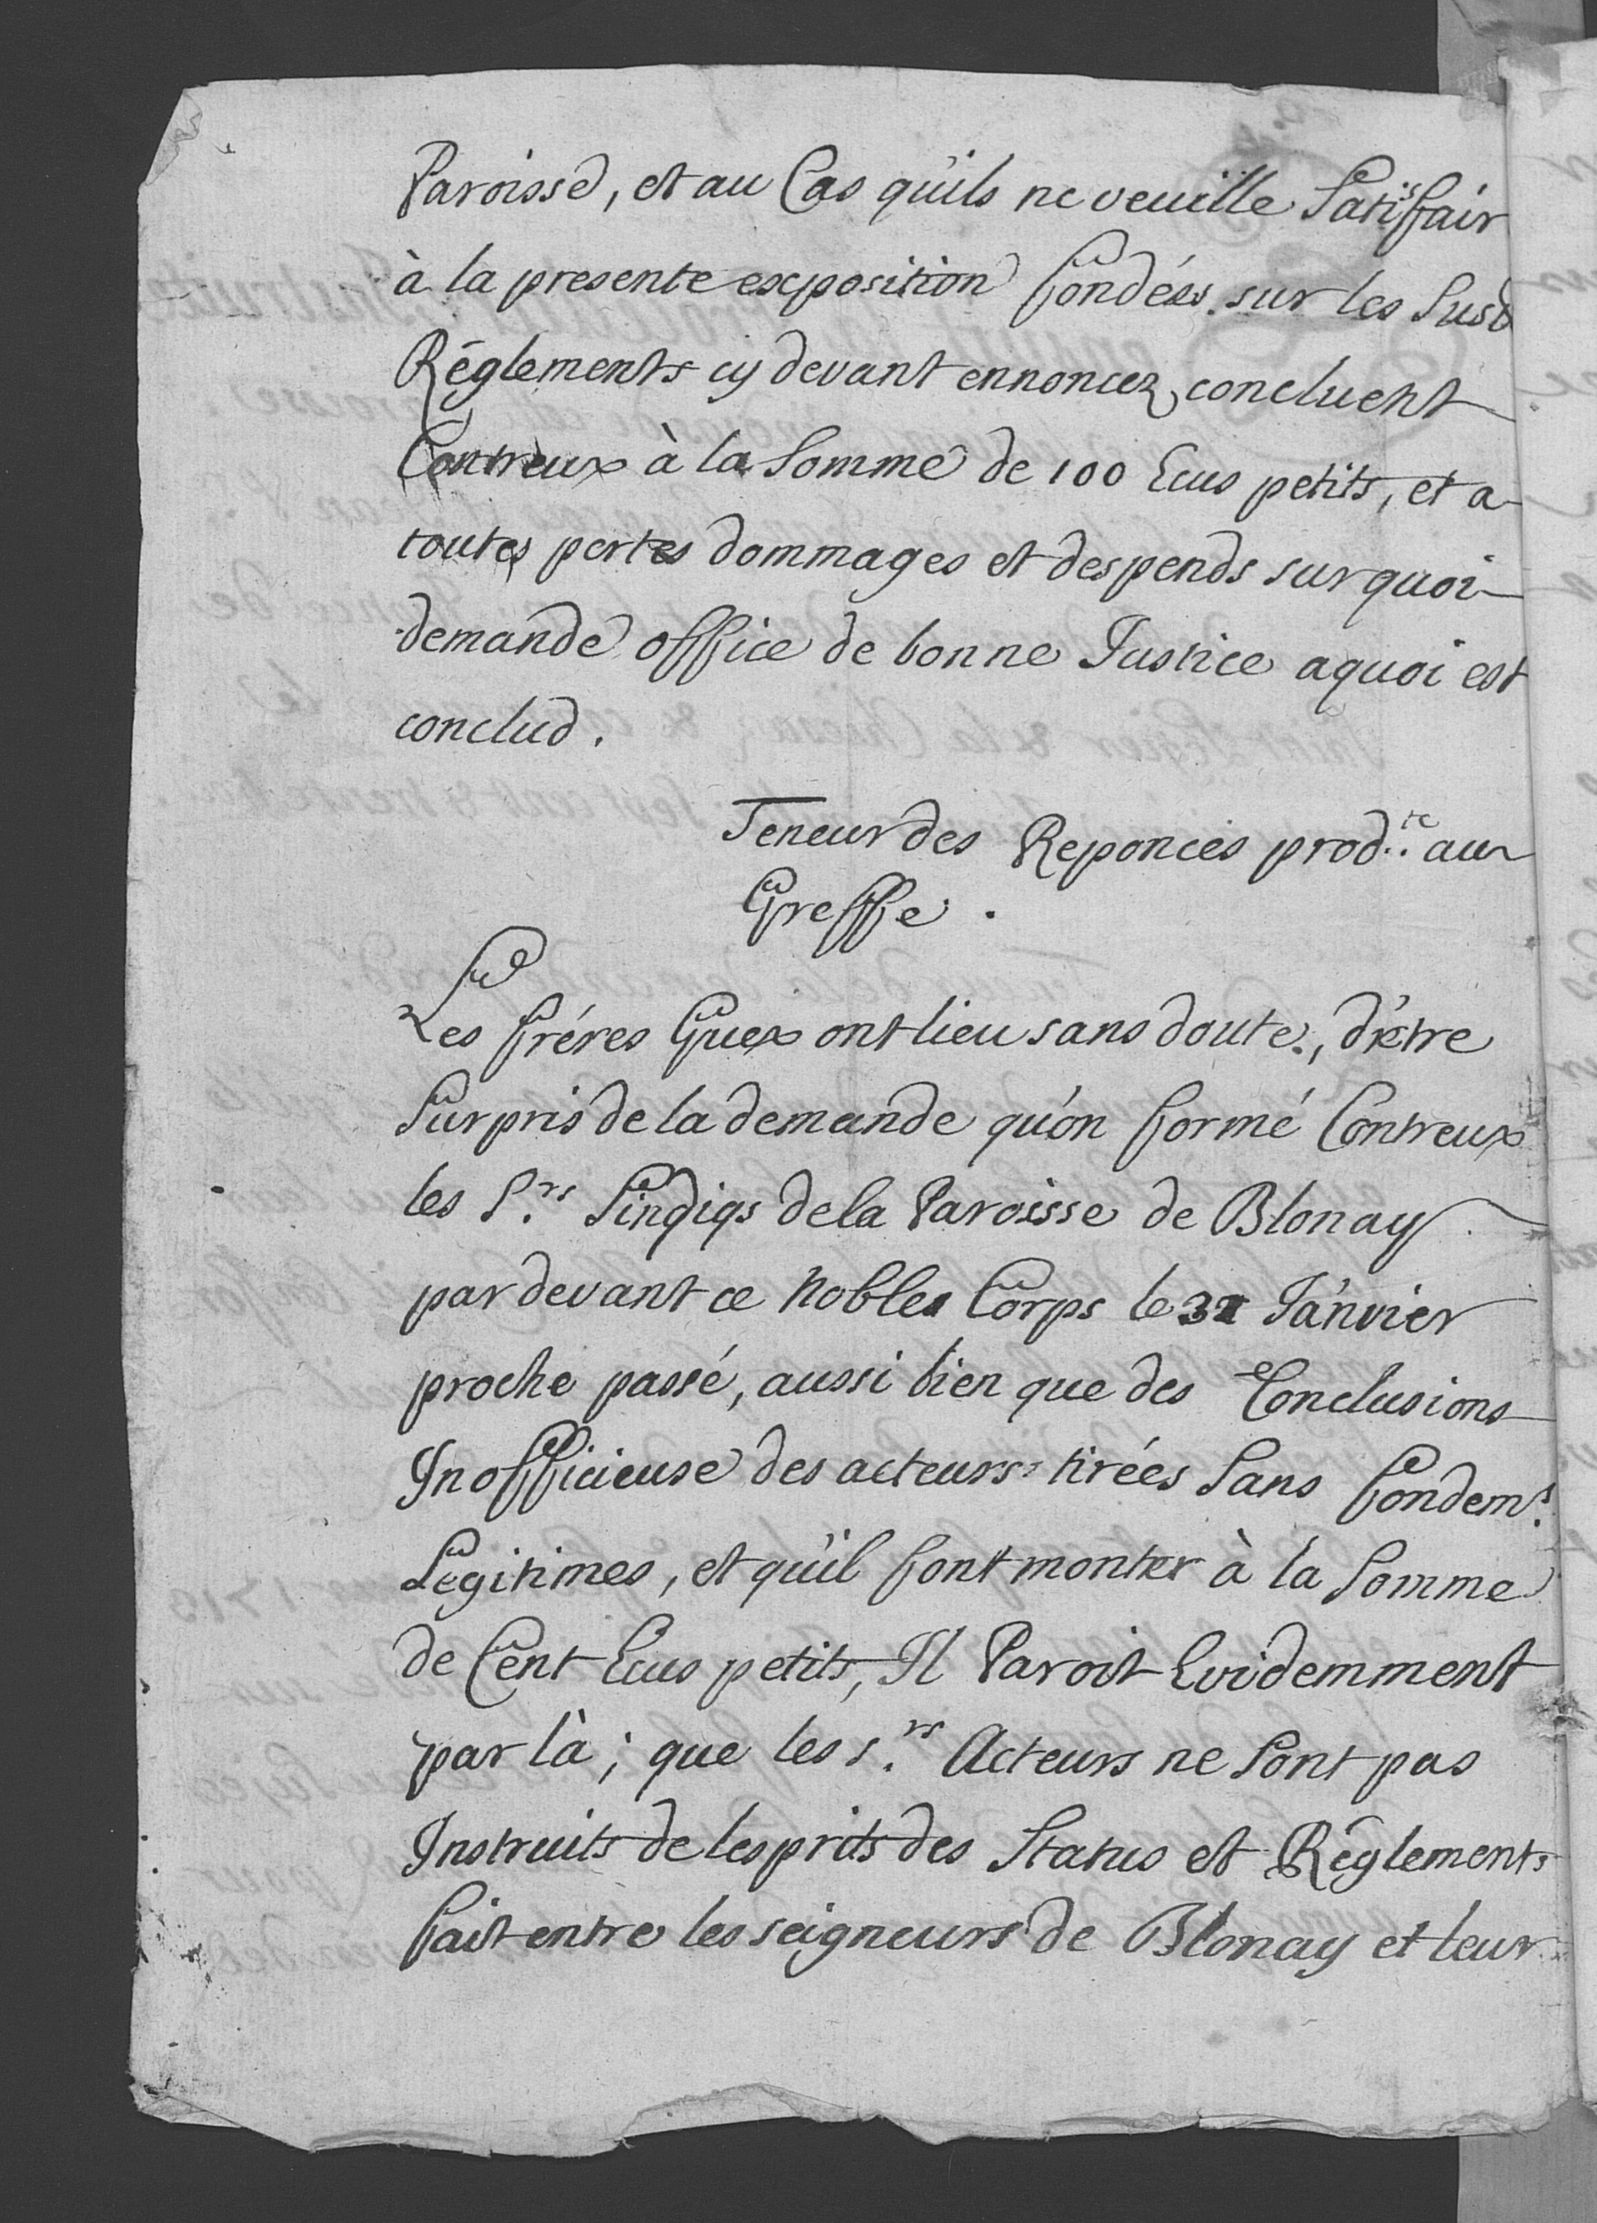 Paroisse, et au Cas qu'ils ne veuille Satisfair
à la presente exposition fondées. sur les Susd
Réglements cy devant ennoncez, concluent
Contreux à la Somme de 100 Ecus petits, et a
toutes pertes dommages et despends sur quoi
demande office de bonne Justice aquoi est
conclud.
Teneur des Reponces prod.te au
Greffe.
Les fréres Guex ont lieu sans doute, d'être
Surpris de la demande qu'on formé Contreux
les S.rs Sindiqs de la Paroisse de Blonay
par devant ce Noble Corps le Janvier
proche passé, aussi bien que des Conclusions
Inofficieuse des acteurs tirées Sans fondem.t
Legitimes, et qu'il font monter à la Somme
de Cent Ecus petits, Il Paroit Evidemment
par là; que les s.rs Acteurs ne Sont pas
Instruits de lesprits des Status et Réglements
fait entre les seigneurs de Blonay et leur